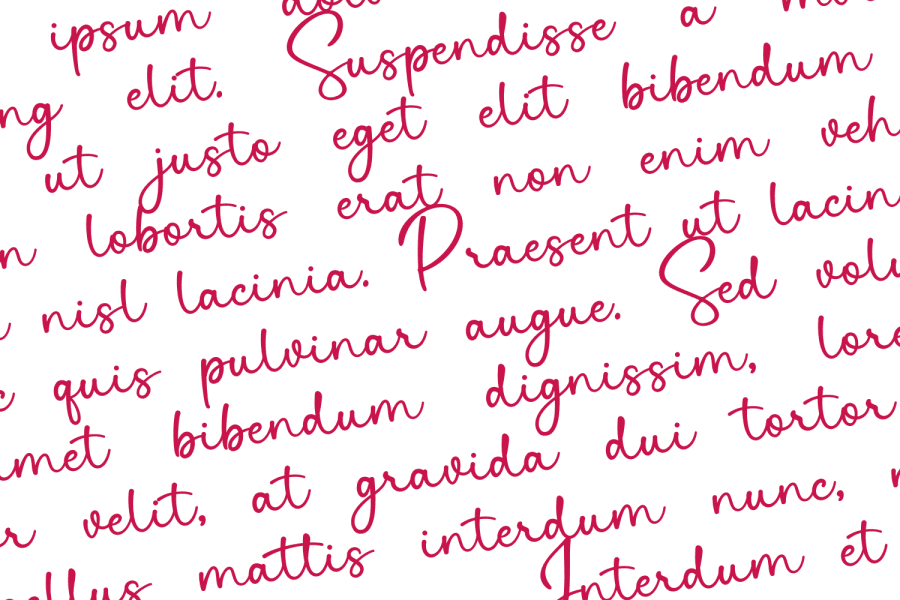 ipsum
ng elit. Suspendisse a
ut justo eget elit bibendum
n lobortis erat non enim veh
nisl lacinia. Praesent ut lacin
quis pulvinar augue. Sed volu
amet bibendum dignissim, lore
r velit, at gravida dui tortor
ellus mattis interdum nunc,
Interdum et